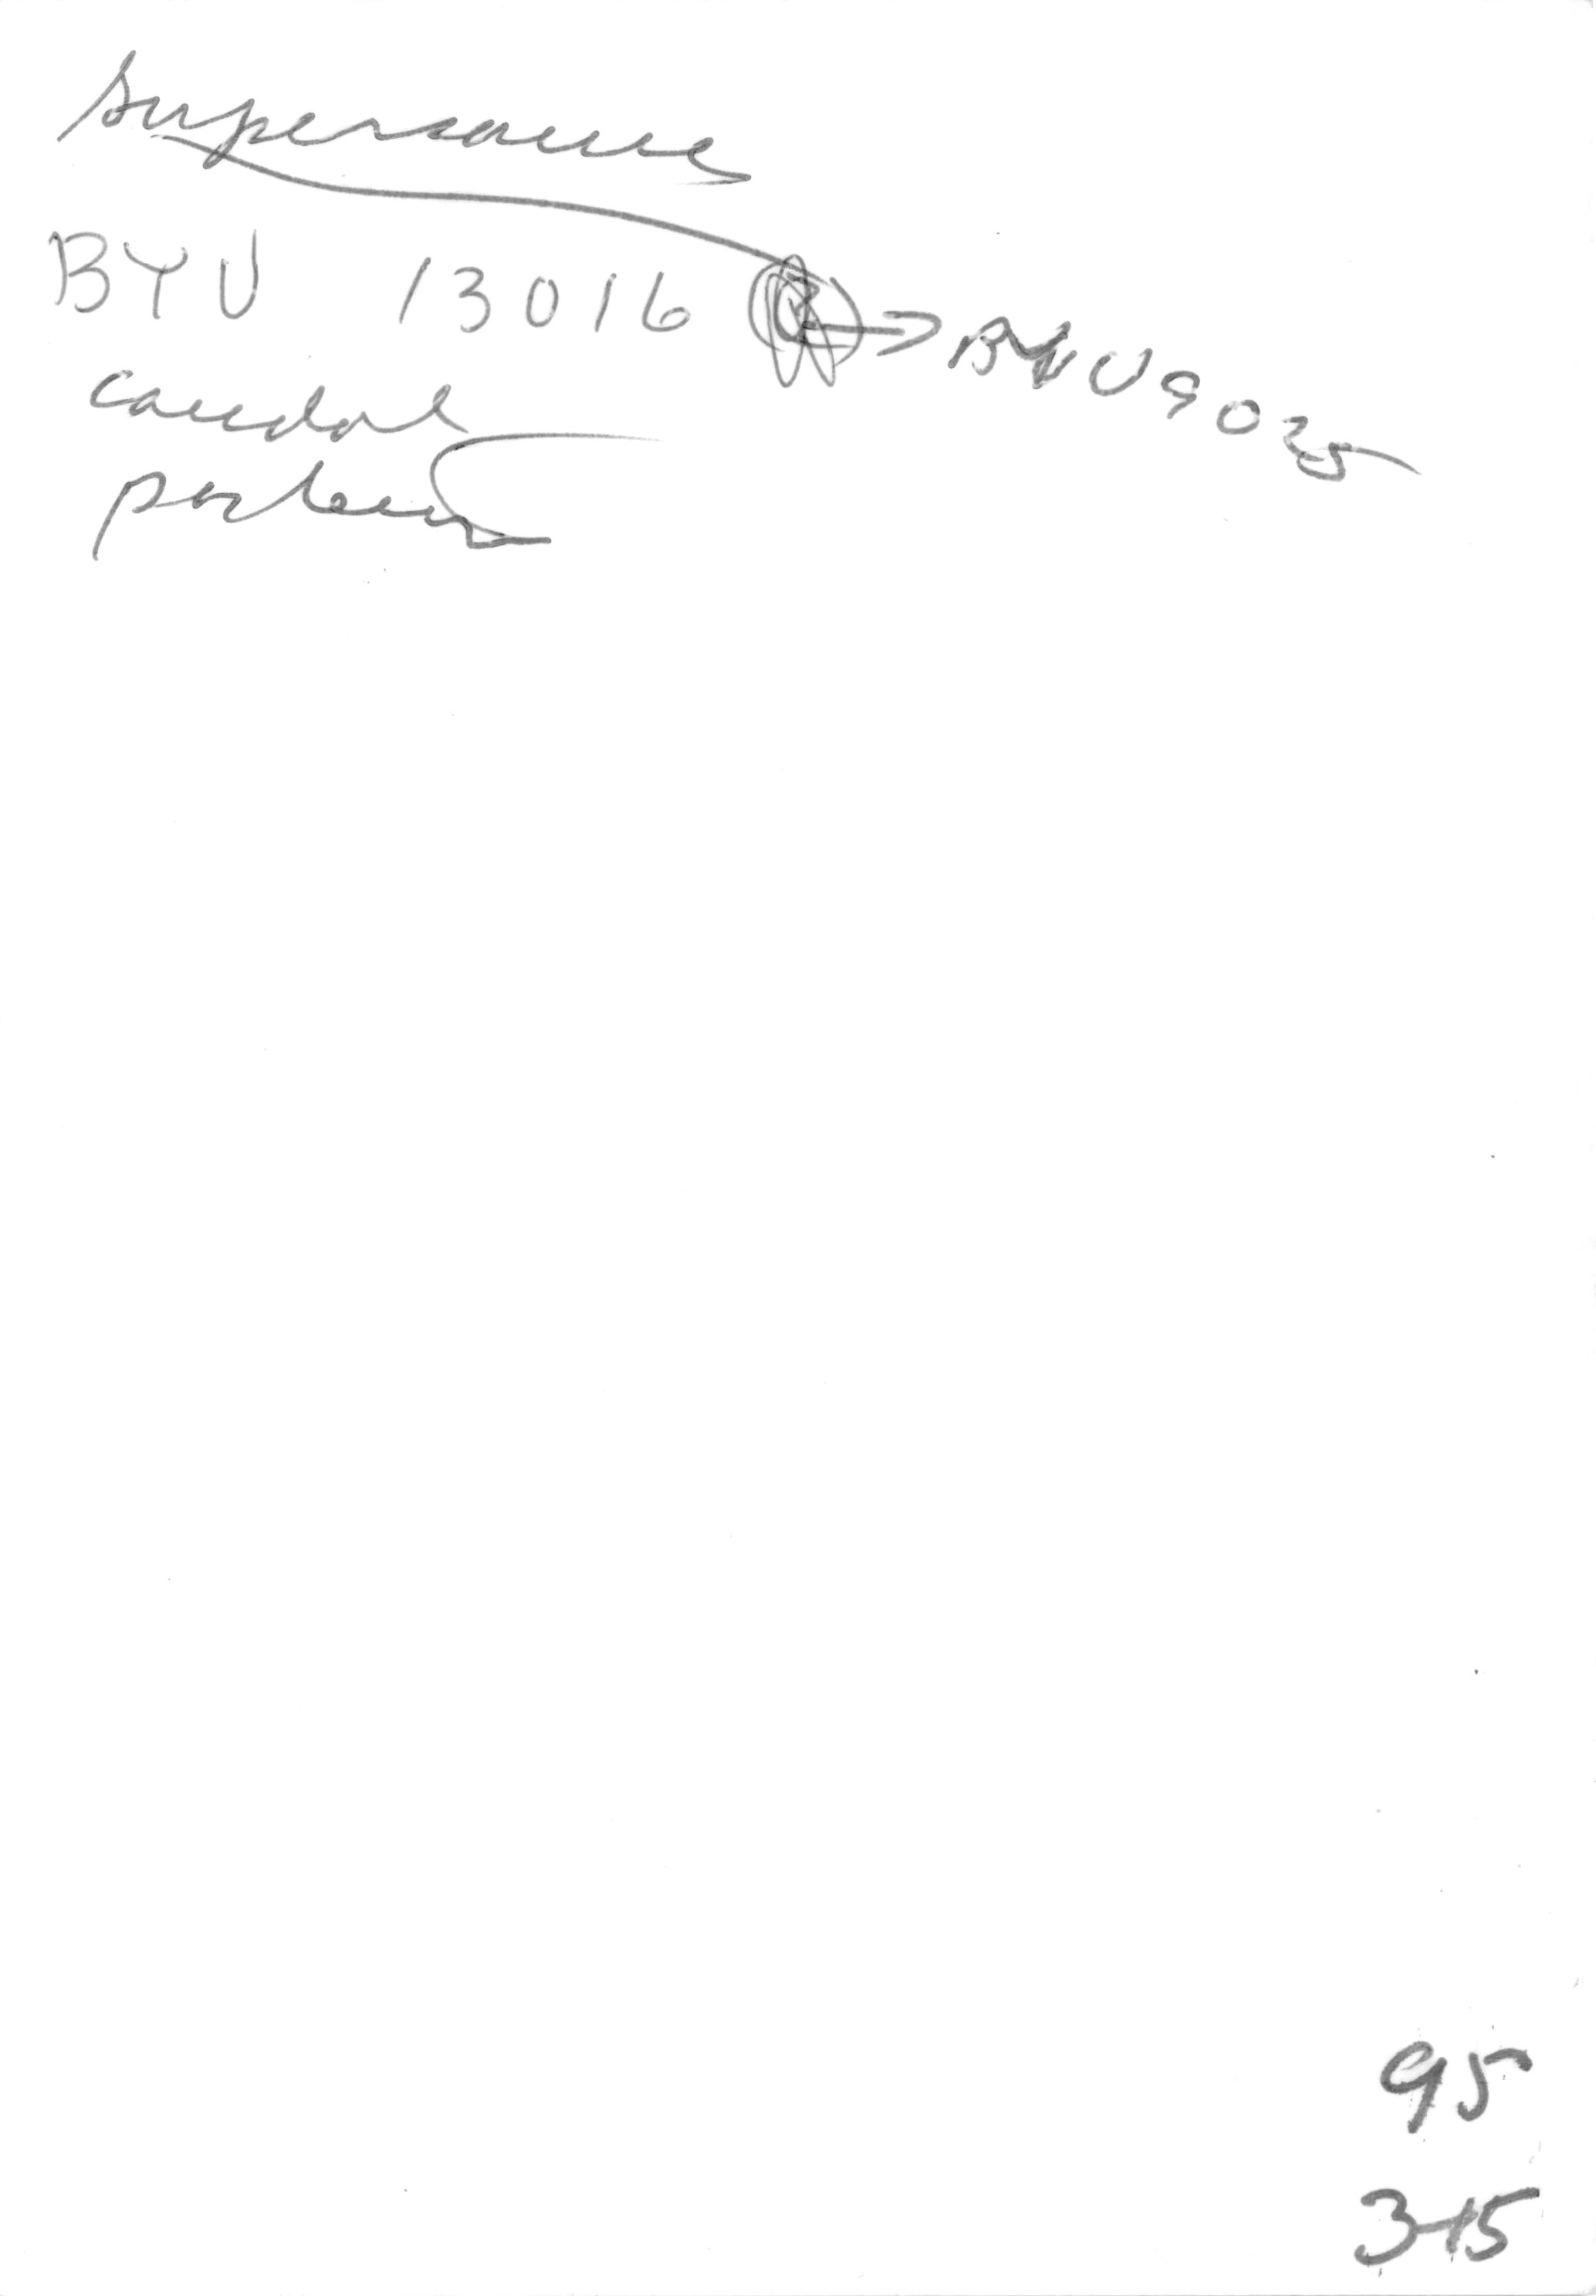 Supersaurus
BYU 13016 → BYU 9025
caudal
posterior
95
3-15